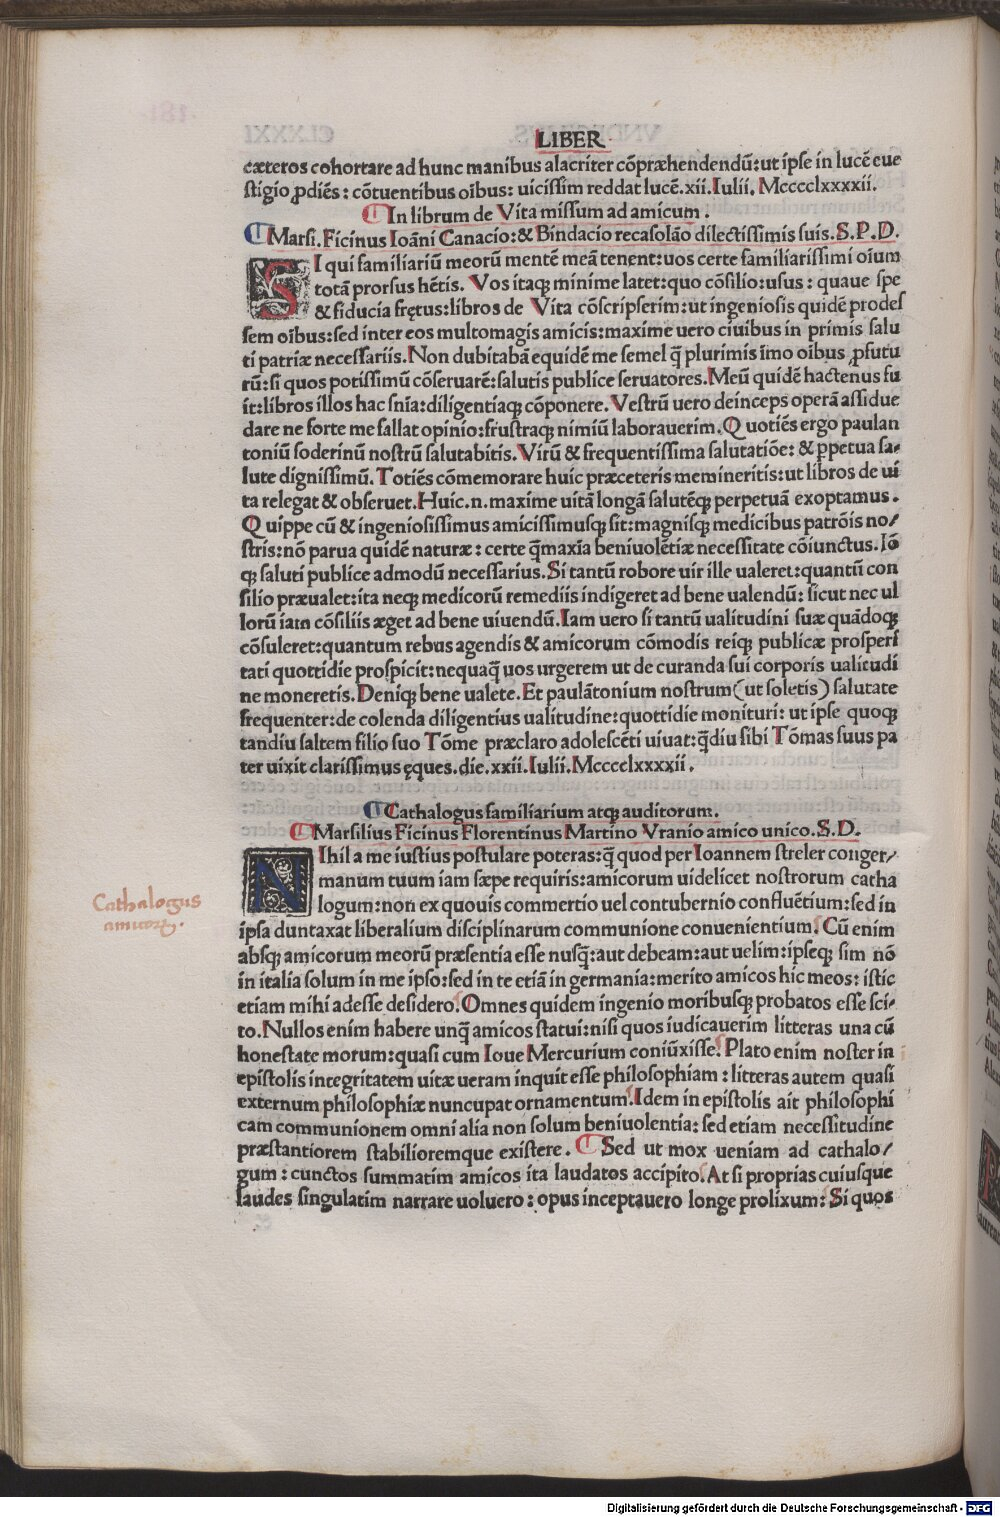 LIBER
exteros cohortare ad hunc manibus alacriter cōpræhendendū: ut ipse in lucē eue
stigio ꝓdiēs: cōtuentibus oībus: uicissim reddat lucē.xii.Iulii. Mccccclxxxxii.
In librum de Vita missum ad amicum.
Marsi.Ficinus Ioāni Canacio:& Bindacio recasolāo dilectissimis suis.S.P.D.
SI qui familiariū meorū mentē meā tenent:uos certe familiarissimi oīum
totā prorsus hētis. Vos itaqꝫ minime latet:quo cōsilio:usus: quaue spe
& fiducia frętus:libros de Vita cōscripserim:ut ingeniosis quidē prodes
sem oībus:sed inter eos multomagis amicis:maxime uero ciuibus in primis salu
ti patriæ necessariis.Non dubitabā equidē me semel q̄ plurimis īmo oībus ꝓfutu
rū:si quos potissimū cōseruarē:salutis publice seruatores.Meū quidē hactenus fu
it:libros illos hac snīa:diligentiaqꝫ cōponere.Vestrū uero deinceps operā assidue
dare ne forte me fallat opinio:frustraqꝫ nimiū laborauerim.Quotiēs ergo paulan
toniū soderinū nostrū salutabitis.Virū & frequentissima salutatiōe: & ꝑpetua sa-
lute dignissimū.Totiēs cōmemorare huic præceteris memineritis:ut libros de ui
ta relegat & obseruet.Huic.n.maxime uitā longā salutēqꝫ perpetuā exoptamus.
Quippe cū & ingeniosissimus amicissimusqꝫ sit:magnisqꝫ medicibus patrōis no/
stris:nō parua quidē naturæ: certe q̄maxīa beniuolētiæ necessitate cōiunctus.Iō
qꝫ saluti publice admodū necessarius.Si tantū robore uir ille ualeret:quantū con
silio præualet:ita neqꝫ medicorū remediis indigeret ad bene ualendū: sicut nec ul
lorū iam cōsiliis æget ad bene uiuendū.Iam uero si tantū ualitudini suæ quādoqꝫ
cōsuleret:quantum rebus agendis & amicorum cōmodis reiqꝫ publicæ prosperi
tati quottidie prospicit:nequaq̄ uos urgerem ut de curanda sui corporis ualitudi
ne moneretis.Deniqꝫ bene ualete.Et paulātonium nostrum(ut soletis)salutate
frequenter:de colenda diligentius ualitudine:quottidie monituri: ut ipse quoqꝫ
tandiu saltem filio suo Tōme præclaro adolescēti uiuat:q̄diu sibi Tōmas suus pa
ter uixit clarissimus ęques.die.xxii.Iulii.Mccccclxxxxii.
Cathalogus familiarium atqꝫ auditorum.
Marsilius Ficinus Florentinus Martino Vranio amico unico.S.D.
NIhil a me iustius postulare poteras:q̄ quod per Ioannem streler conger/
manum tuum iam sæpe requiris:amicorum uidelicet nostrorum catha
logum:non ex quouis commertio uel contubernio confluētium:sed in
Cathalogus
amicorꝝ.
ipsa duntaxat liberalium disciplinarum communione conuenientium.Cū enim
absqꝫ amicorum meorū præsentia esse nusq̄:aut debeam:aut uelim:ipseqꝫ sim nō
in italia solum in me ipso:sed in te etiā in germania:merito amicos hic meos: istic
etiam mihi adesse desidero.Omnes quidem ingenio moribusqꝫ probatos esse sci-
to.Nullos enim habere unq̄ amicos statui:nisi quos iudicauerim litteras una cū
honestate morum:quasi cum Ioue Mercurium coniūxisse.Plato enim noster in
epistolis integritatem uitæ ueram inquit esse philosophiam: litteras autem quasi
externum philosophiæ nuncupat ornamentum.Idem in epistolis ait philosophi
cam communionem omni alia non solum beniuolentia: sed etiam necessitudine
præstantiorem stabilioremque existere. Sed ut mox ueniam ad cathalo/
gum: cunctos summatim amicos ita laudatos accipito.At si proprias cuiusque
laudes singulatim narrare uoluero: opus inceptauero longe prolixum: Si quos
Digitalisierung gefördert durch die Deutsche Forschungsgemeinschaft - DFG